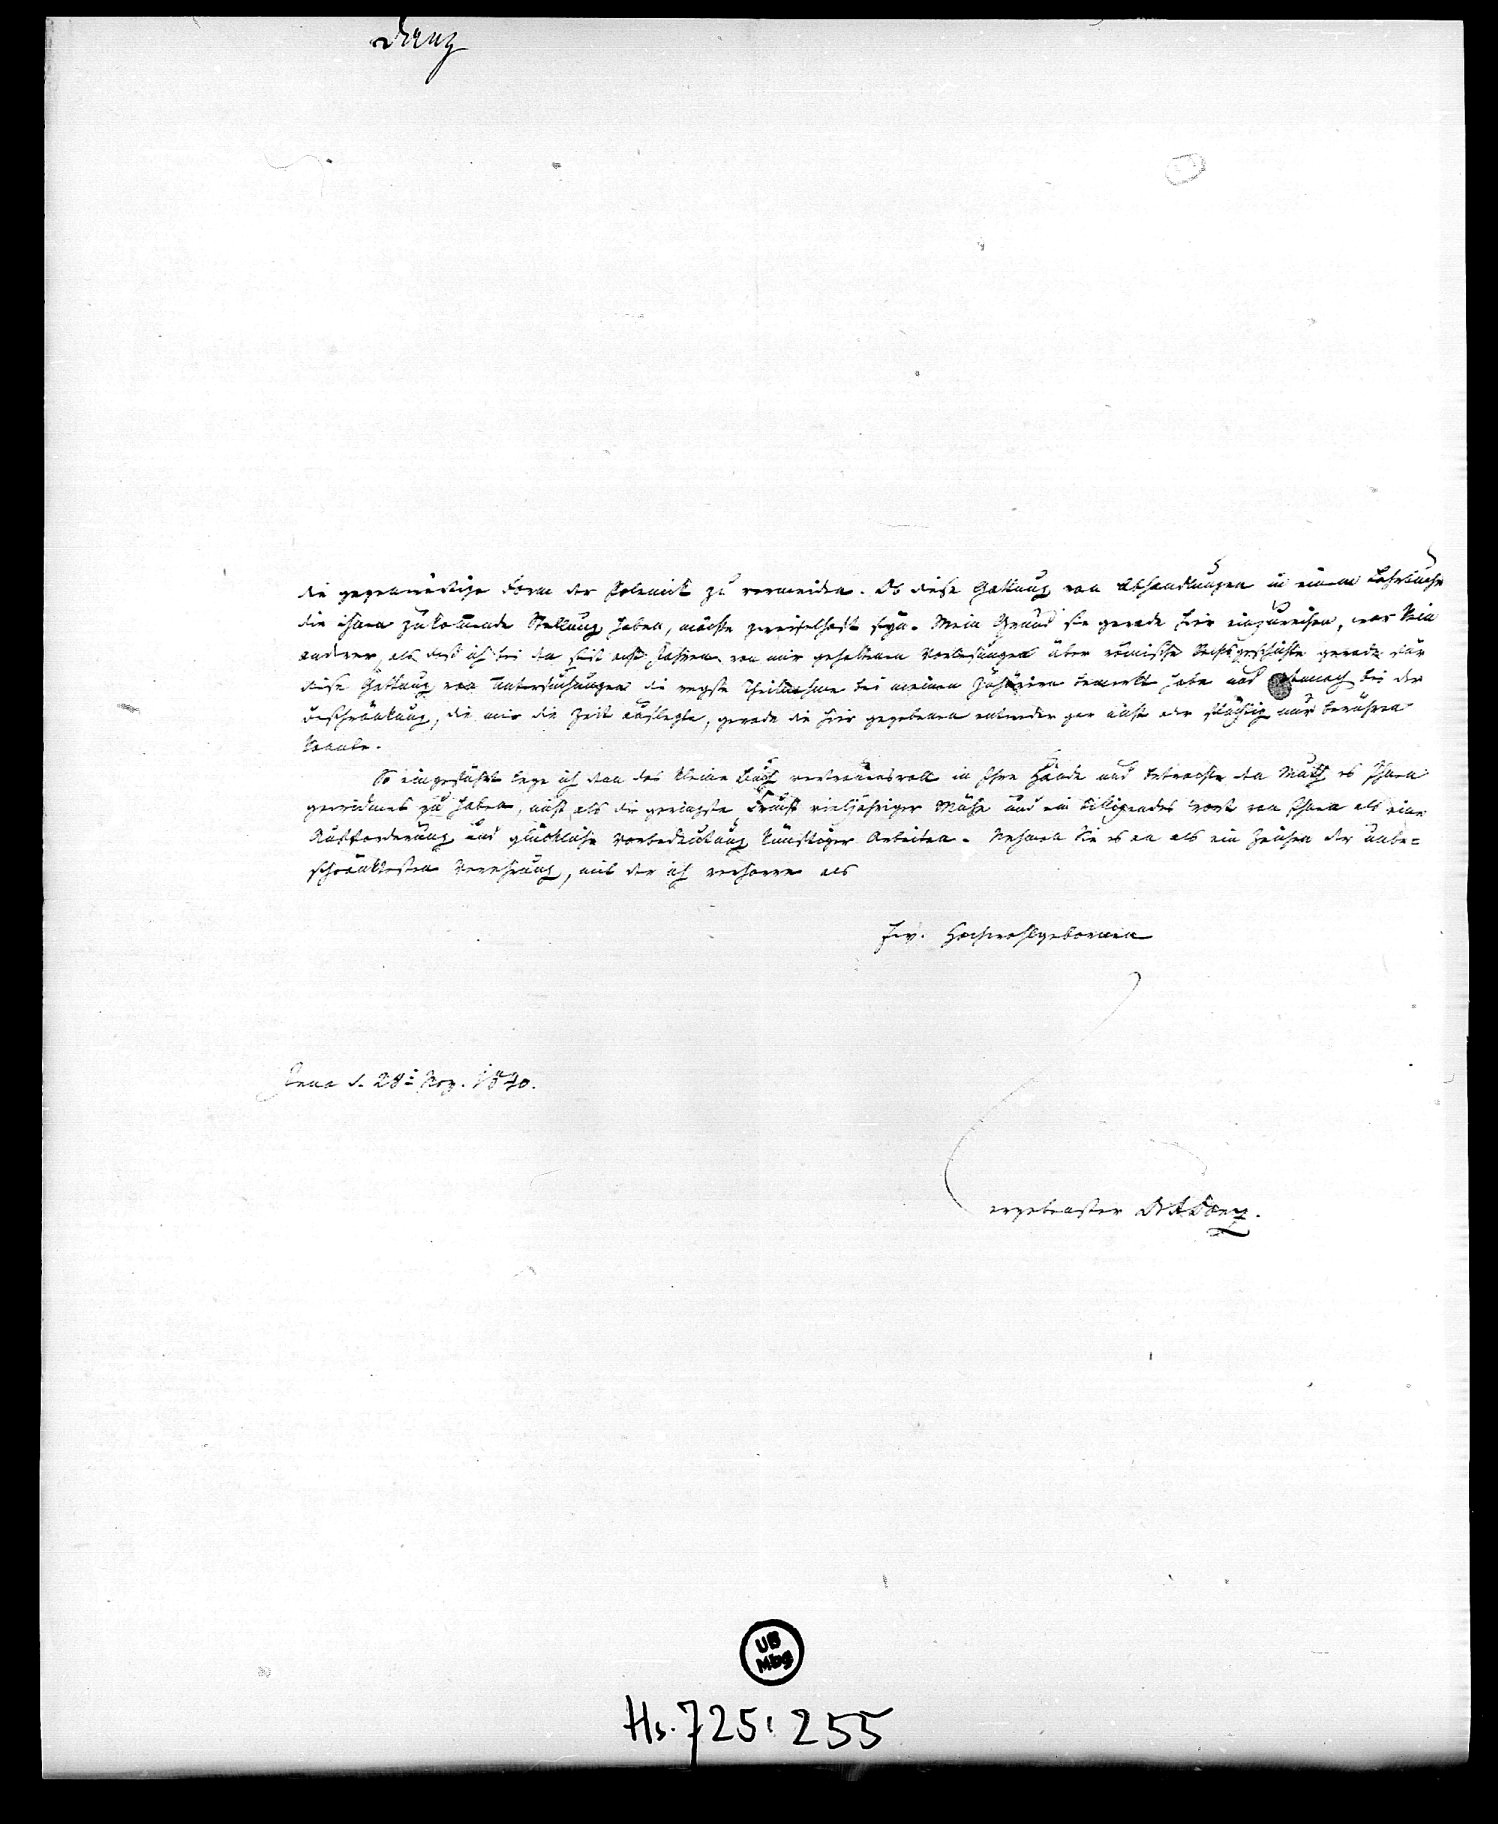 Danz
die gegenwärtige Form der Polemik zu vermeiden. Ob diese Gattung von Abhandlungen in einem Lehrbuche
die ihnen zukommende Stellung haben, möchte zweifelhaft seyn. Mein Grund sie gerade hier einzureihen, war kein
anderer, als daß ich bei den seit acht Jahren von mir gehaltenen Vorlesungen über römische Rechtsgeschichte gerade für
diese Gattung von Untersuchungen die regste Theilnahme bei meinen Zuhörern bemerkt habe und dennoch bei der
Beschränkung, die mir die Zeit auflegte, gerade die hier gegebenen entweder gar nicht oder flüchtig nur berühren
konnte.
So eingeführt lege ich denn das kleine Buch vertrauensvoll in Ihre Hände und betrachte den Muth es Ihnen
gewidmet zu haben, nicht als die geringste Frucht vieljähriger Mühe und ein billigendes Wort von Ihnen als eine
Aufforderung und glückliche Vorbedeutung künftiger Arbeiten. Nehmen Sie es an als ein Zeichen der unbe=
schränktesten Verehrung, mit der ich verharre als
Ew. Hochwohlgeboren
Jena d. 28. Nov. 1840.
ergebenster Dr A Danz.
UB
Mbg
Hs. 725: 255